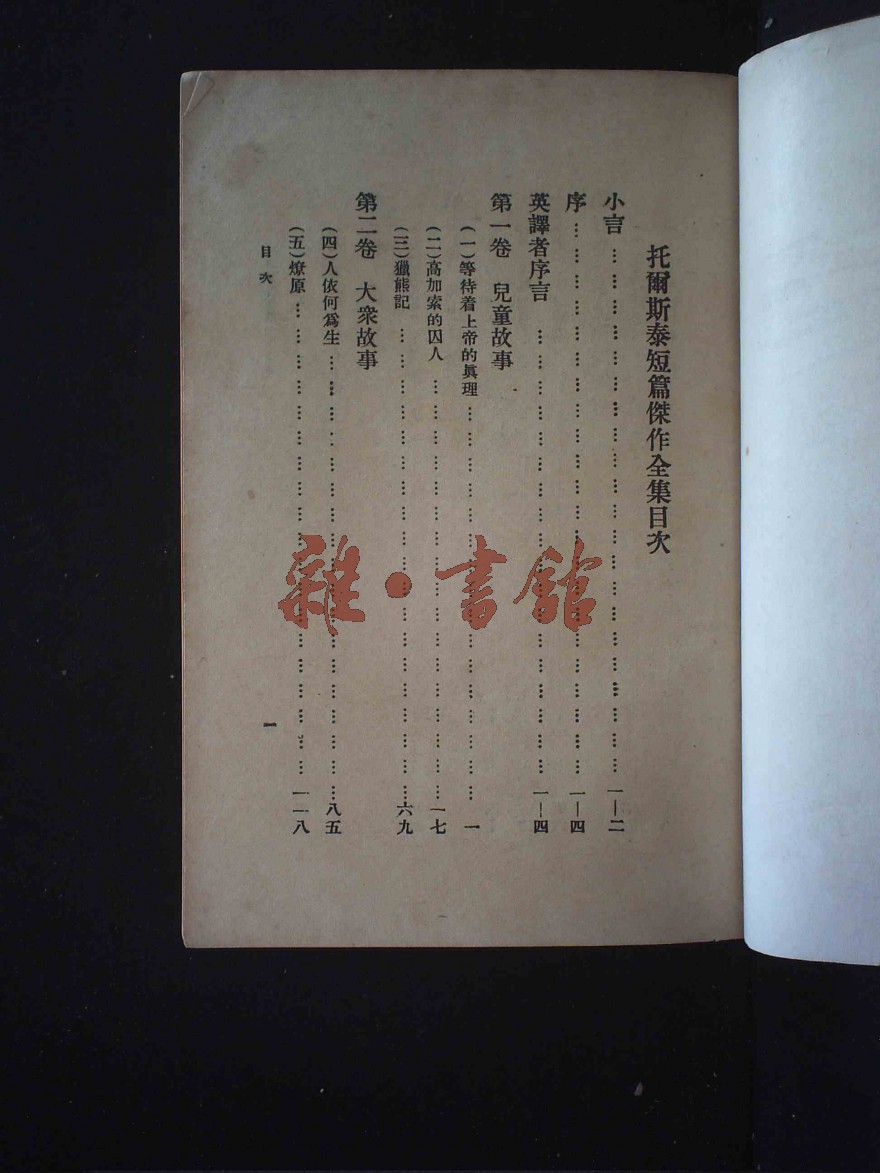 托爾斯泰短篇傑作全集目次
小言…………………………………………………………一—二
序…………………………………………………………一—四
英譯者序言…………………………………………………一—四
第一卷　兒童故事
(一)等待着上帝的眞理………………………………………一
(二)高加索的囚人…………………………………………一七
(三)獵熊記………………………………………………六九
第二卷　大衆故事
(四)人依何爲生……………………………………………八五
(五)燎原…………………………………………………一一八
目次
一
雜·書館